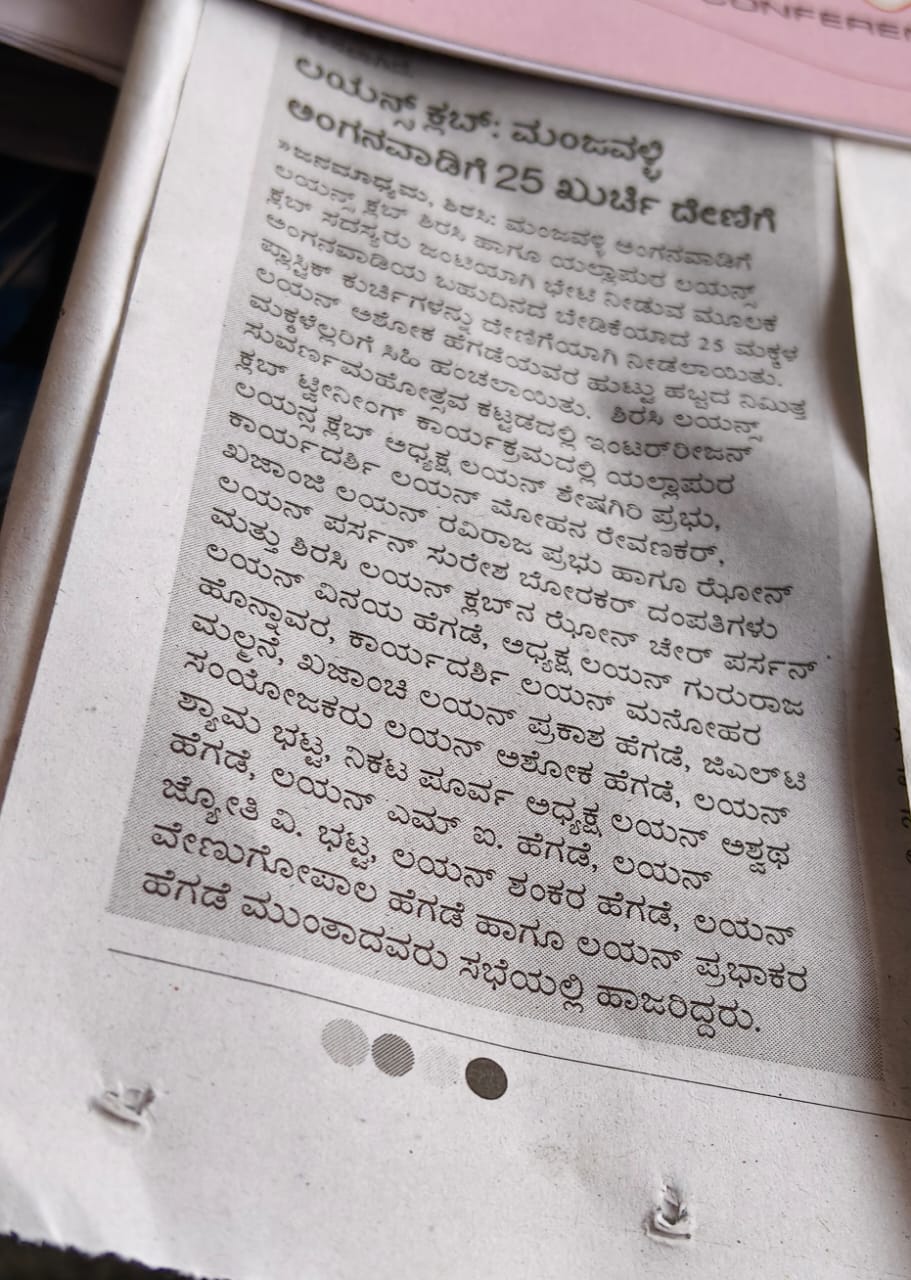 CONFEREN
ಲಯನ್ಸ್ ಕ್ಲಬ್: ಮಂಜವಳ್ಳಿ
ಅಂಗನವಾಡಿಗೆ 25 ಖುರ್ಚಿ ದೇಣಿಗೆ
»ಜನಮಾಧ್ಯಮ, ಶಿರಸಿ: ಮಂಜವಳ್ಳಿ ಅಂಗನವಾಡಿಗೆ
ಲಯನ್ಸ್ ಕ್ಲಬ್ ಶಿರಸಿ ಹಾಗೂ ಯಲ್ಲಾಪುರ ಲಯನ್ಸ್
ಕ್ಲಬ್ ಸದಸ್ಯರು ಜಂಟಿಯಾಗಿ ಭೇಟಿ ನೀಡುವ ಮೂಲಕ
ಅಂಗನವಾಡಿಯ ಬಹುದಿನದ ಬೇಡಿಕೆಯಾದ 25 ಮಕ್ಕಳ
ಪ್ಲಾಸ್ಟಿಕ್ ಕುರ್ಚಿಗಳನ್ನು ದೇಣಿಗೆಯಾಗಿ ನೀಡಲಾಯಿತು.
ಲಯನ್ ಅಶೋಕ ಹೆಗಡೆಯವರ ಹುಟ್ಟು ಹಬ್ಬದ ನಿಮಿತ್ತ
ಮಕ್ಕಳೆಲ್ಲರಿಗೆ ಸಿಹಿ ಹಂಚಲಾಯಿತು. ಶಿರಸಿ ಲಯನ್ಸ್
ಸುವರ್ಣಮಹೋತ್ಸವ ಕಟ್ಟಡದಲ್ಲಿ ಇಂಟರ್‌ರೀಜನ್
ಕ್ಲಬ್ ಟ್ವೀನೀಂಗ್ ಕಾರ್ಯಕ್ರಮದಲ್ಲಿ ಯಲ್ಲಾಪುರ
ಲಯನ್ಸ ಕ್ಲಬ್ ಅಧ್ಯಕ್ಷ ಲಯನ್ ಶೇಷಗಿರಿ ಪ್ರಭು,
ಕಾರ್ಯದರ್ಶಿ ಲಯನ್ ಮೋಹನ ರೇವಣಕರ್,
ಖಜಾಂಜಿ ಲಯನ್ ರವಿರಾಜ ಪ್ರಭು ಹಾಗೂ ಝೋನ್
ಲಯನ್ ಪರ್ಸನ್ ಸುರೇಶ ಬೋರಕರ್ ದಂಪತಿಗಳು
ಮತ್ತು ಶಿರಸಿ ಲಯನ್ ಕ್ಲಬ್‌ನ ಝೋನ್ ಚೇರ್ ಪರ್ಸನ್
ಲಯನ್ ವಿನಯ ಹೆಗಡೆ, ಅಧ್ಯಕ್ಷ ಲಯನ್ ಗುರುರಾಜ
ಹೊನ್ನಾವರ, ಕಾರ್ಯದರ್ಶಿ ಲಯನ್ ಮನೋಹರ
ಮಲ್ಮನೆ, ಖಜಾಂಚಿ ಲಯನ್ ಪ್ರಕಾಶ ಹೆಗಡೆ, ಜಿಎಲ್‌ಟಿ
ಸಂಯೋಜಕರು ಲಯನ್ ಅಶೋಕ ಹೆಗಡೆ, ಲಯನ್
ಶ್ಯಾಮ ಭಟ್ಟ, ನಿಕಟ ಪೂರ್ವ ಅಧ್ಯಕ್ಷ ಲಯನ್ ಅಶ್ವಥ
ಹೆಗಡೆ, ಲಯನ್ ಎಮ್ ಐ. ಹೆಗಡೆ, ಲಯನ್
ಜ್ಯೋತಿ ವಿ. ಭಟ್ಟ, ಲಯನ್ ಶಂಕರ ಹೆಗಡೆ, ಲಯನ್
ವೇಣುಗೋಪಾಲ ಹೆಗಡೆ ಹಾಗೂ ಲಯನ್ ಪ್ರಭಾಕರ
ಹೆಗಡೆ ಮುಂತಾದವರು ಸಭೆಯಲ್ಲಿ ಹಾಜರಿದ್ದರು.